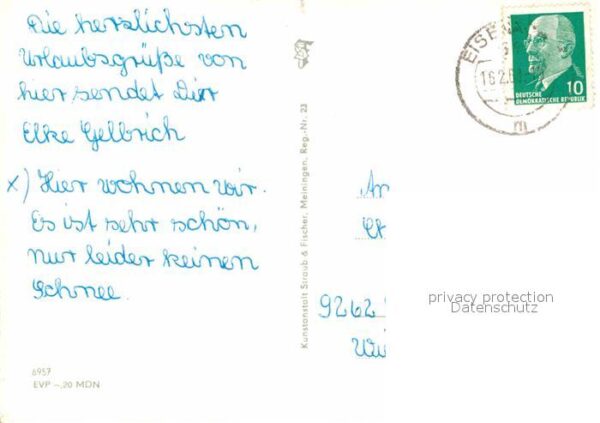 Die herzlichsten
Urlaubsgrüße von
hier sendet Dir
Elke Gelbrich
x) Hier wohnen wir.
Es ist sehr schön,
nur leider keinen
Schnee.
6957
EVP –,20 MDN
Kunstanstalt Straub & Fischer, Meiningen, Reg.-Nr. 23
EISENA
16.2.6
m
10
DEUTSCHE
DEMOKRATISCHE REPUBLIK
An
9262
privacy protection
Datenschutz